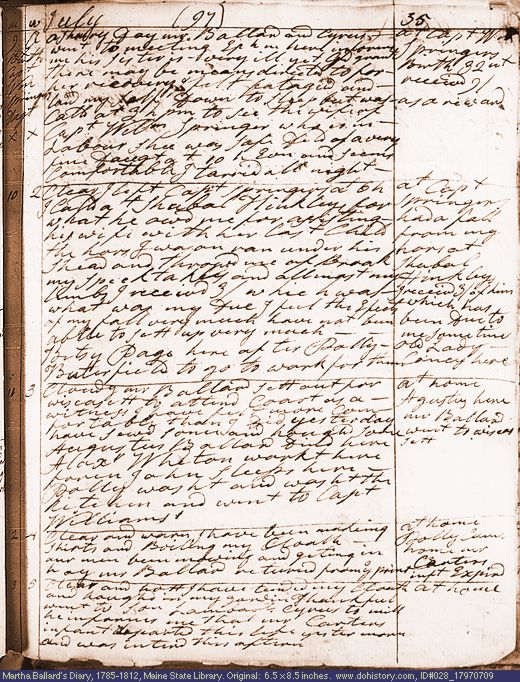 July (97) 35
a thundry Day mr Ballard and Cyrus
went to meeting Ephm here informs
me his sister is very ill
there may be means directed to for
her recovery I felt fataged and
Laid my self down to sleep but was
Calld at 3 h pm to see the wife of
Capt Willm Springer who is in
Labour Shee was Safe Dld of a very
fine Daughter at 10 h Evn and Seems
Comfortable I tarried all night
at Capt Wm
Springers
Birth 32nt
receivd 9/
as a reward
10 2 Clear I left Capt Springers at 6 h
I Calld at Shubal Hinkleys for
what he owd me for assisting
his wife with her Last Child
the hors I was on ran under his
Shead and throwd me of Broak
my Specktakles and allmost my
Limbs I receivd 9/ which was
what was my Due I feel the Effects
of my fall very much have not been
able to sett up very much
Polly Page here after Dolly
Butterfield to go to work for them
at Capt
Springers
had a fall
from my
hors at
Shubal
Hinkleys
receivd 9/ of him
which has
been Due to
me sometime
old Lady
Coney here
11 3 Cloudy mr Ballard sett out for
wiscasett to attend Coart as a
witness I have felt more Com-
fortable than I did yesterday
have sewd some and
Augustus Ballard dind here
Alaxr Wheton workt here
Dolly washt and washt the
kitchen and went to Capt
Williams'
at home
Augustus here
mr Ballard
went to wicas
sett
12 4 Clear and warm I have been making
Shirts and Boiling my Cloath
our men been mowing and geting in
hay mr Ballard returnd from
at home
Dolly Came
home mr
Carters
inft Expird
13 5 Clear and hott I have
and
went to Son Lambards Cyrus to mill
he informs me that mr Carters
infant departed this life yester morn
and was interd this aftern
at home
Martha Ballard's Diary, 1785-1812, Maine State Library. Original: 6.5 x 8.5 inches. www.dohistory.com, ID#028_17970709